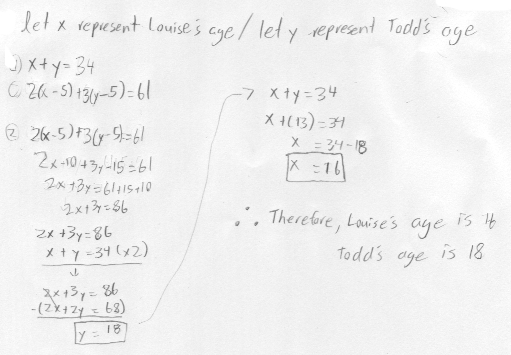 let x represent Louise's age / let y represent Todd's age
① x+y=34
② 2(x-5)+3(y-5)=61
② 2(x-5)+3(y-5)=61
2x-10+3y-15=61
2x+3y=61+15+10
2x+3y=86
2x+3y=86
x+y=34 (x2)
↓
2x+3y=86
-(2x+2y=68)
y=18
→ x+y=34
x+(13)=34
x=34-18
x=16
∴ Therefore, Louise's age is 16
Todd's age is 18